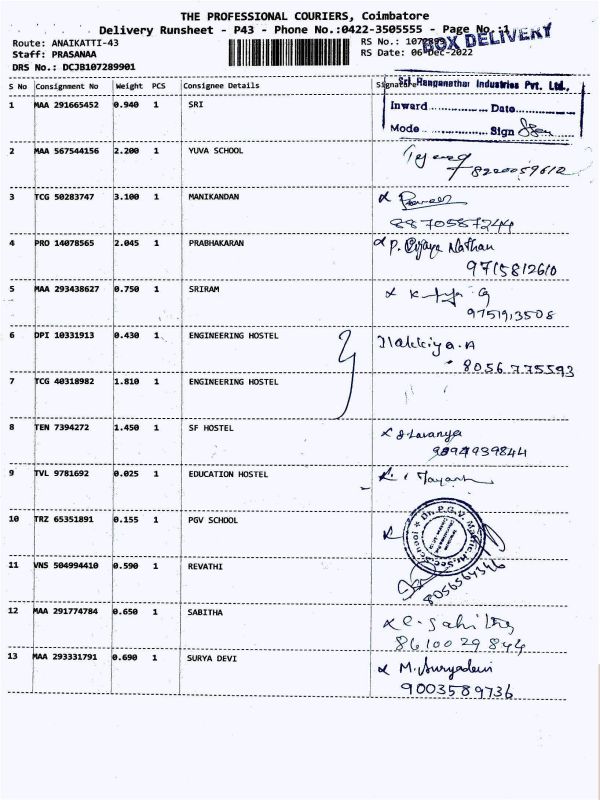 THE PROFESSIONAL COURIERS, Coimbatore
Delivery Runsheet - P43 - Phone No.:0422-3505555 - Page No.:1
BOX DELIVERY
Route: ANAIKATTI-43
Staff: PRASANAA
DRS No.: DCJB107289901
RS No.:
RS Date: 06-Dec-2022
S No Consignment No Weight PCS Consignee Details Signature
Sri Ranganathar Industries Pvt. Ltd.,
Inward .............. Date..............
Mode .............. Sign
1 MAA 291665452 0.940 1 SRI
2 MAA 567544156 2.200 1 YUVA SCHOOL
8220059612
3 TCG 50283747 3.100 1 MANIKANDAN
8870587244
4 PRO 14078565 2.045 1 PRABHAKARAN P. Vijaya Nathan
9715812610
5 MAA 293438627 0.750 1 SRIRAM
9751913508
6 DPI 10331913 0.430 1 ENGINEERING HOSTEL Ilakkiya.A
8056775593
7 TCG 40318982 1.810 1 ENGINEERING HOSTEL
8 TEN 7394272 1.450 1 SF HOSTEL Lavanya
9894939844
9 TVL 9781692 0.025 1 EDUCATION HOSTEL
10 TRZ 65351891 0.155 1 PGV SCHOOL
Dr. P.G.V. Matric. Hr. Sec. School
11 VNS 504994410 0.590 1 REVATHI
8056564346
12 MAA 291774784 0.650 1 SABITHA
8610029844
13 MAA 293331791 0.690 1 SURYA DEVI M. Suryadevi
9003589736